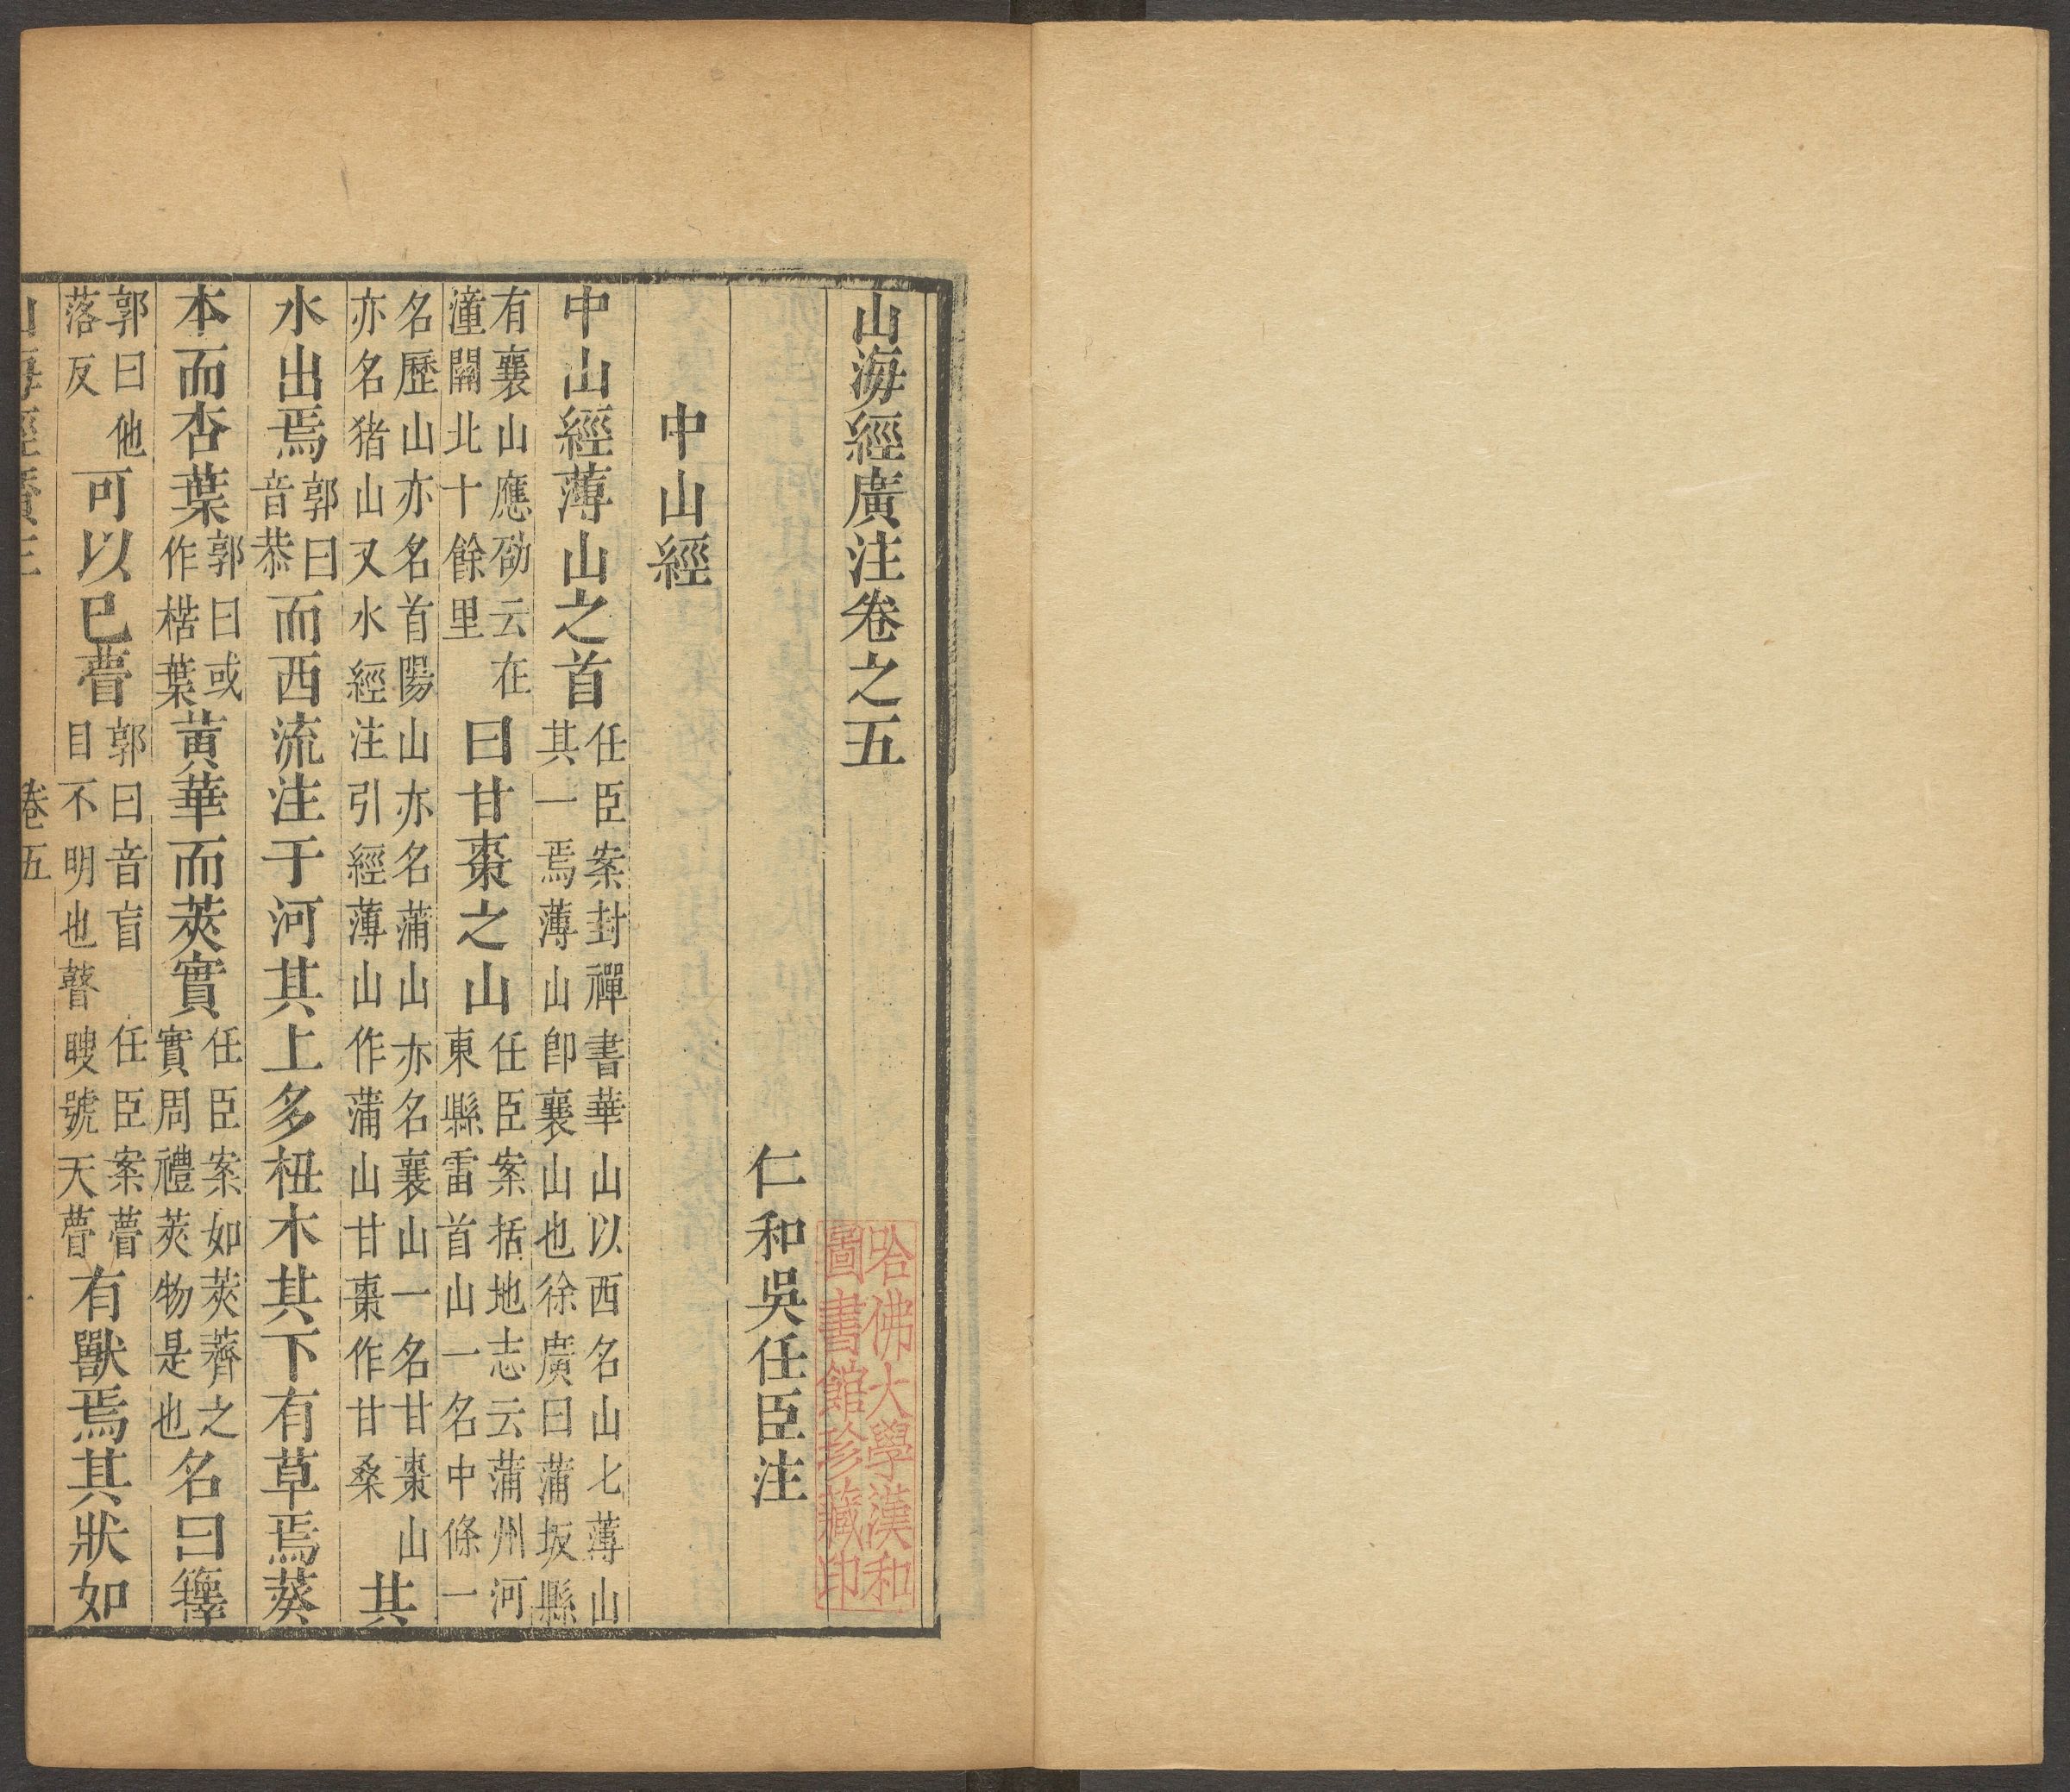 山海經廣注卷之五
仁和吳任臣注
中山經
中山經薄山之首任臣案封禪書華山以西名山七薄山其一焉薄山卽襄山也徐廣曰蒲坂縣
有襄山應劭云在潼關北十餘里曰甘棗之山任臣案括地志云蒲州河東縣雷首山一名中條一
名歷山亦名首陽山亦名蒲山亦名襄山一名甘棗山亦名猪山又水經注引經薄山作蒲山甘棗作甘桑其
水出焉郭曰音恭而西流注于河其上多杻木其下有草焉葵
本而杏葉郭曰或作楛葉黃華而莢實任臣案如莢薺之實周禮莢物是也名曰籜
郭曰他落反可以已瞢郭曰音盲目不明也任臣案瞢瞽瞍號天瞢有獸焉其狀如
卷五
哈佛大學漢和
圖書館珍藏印